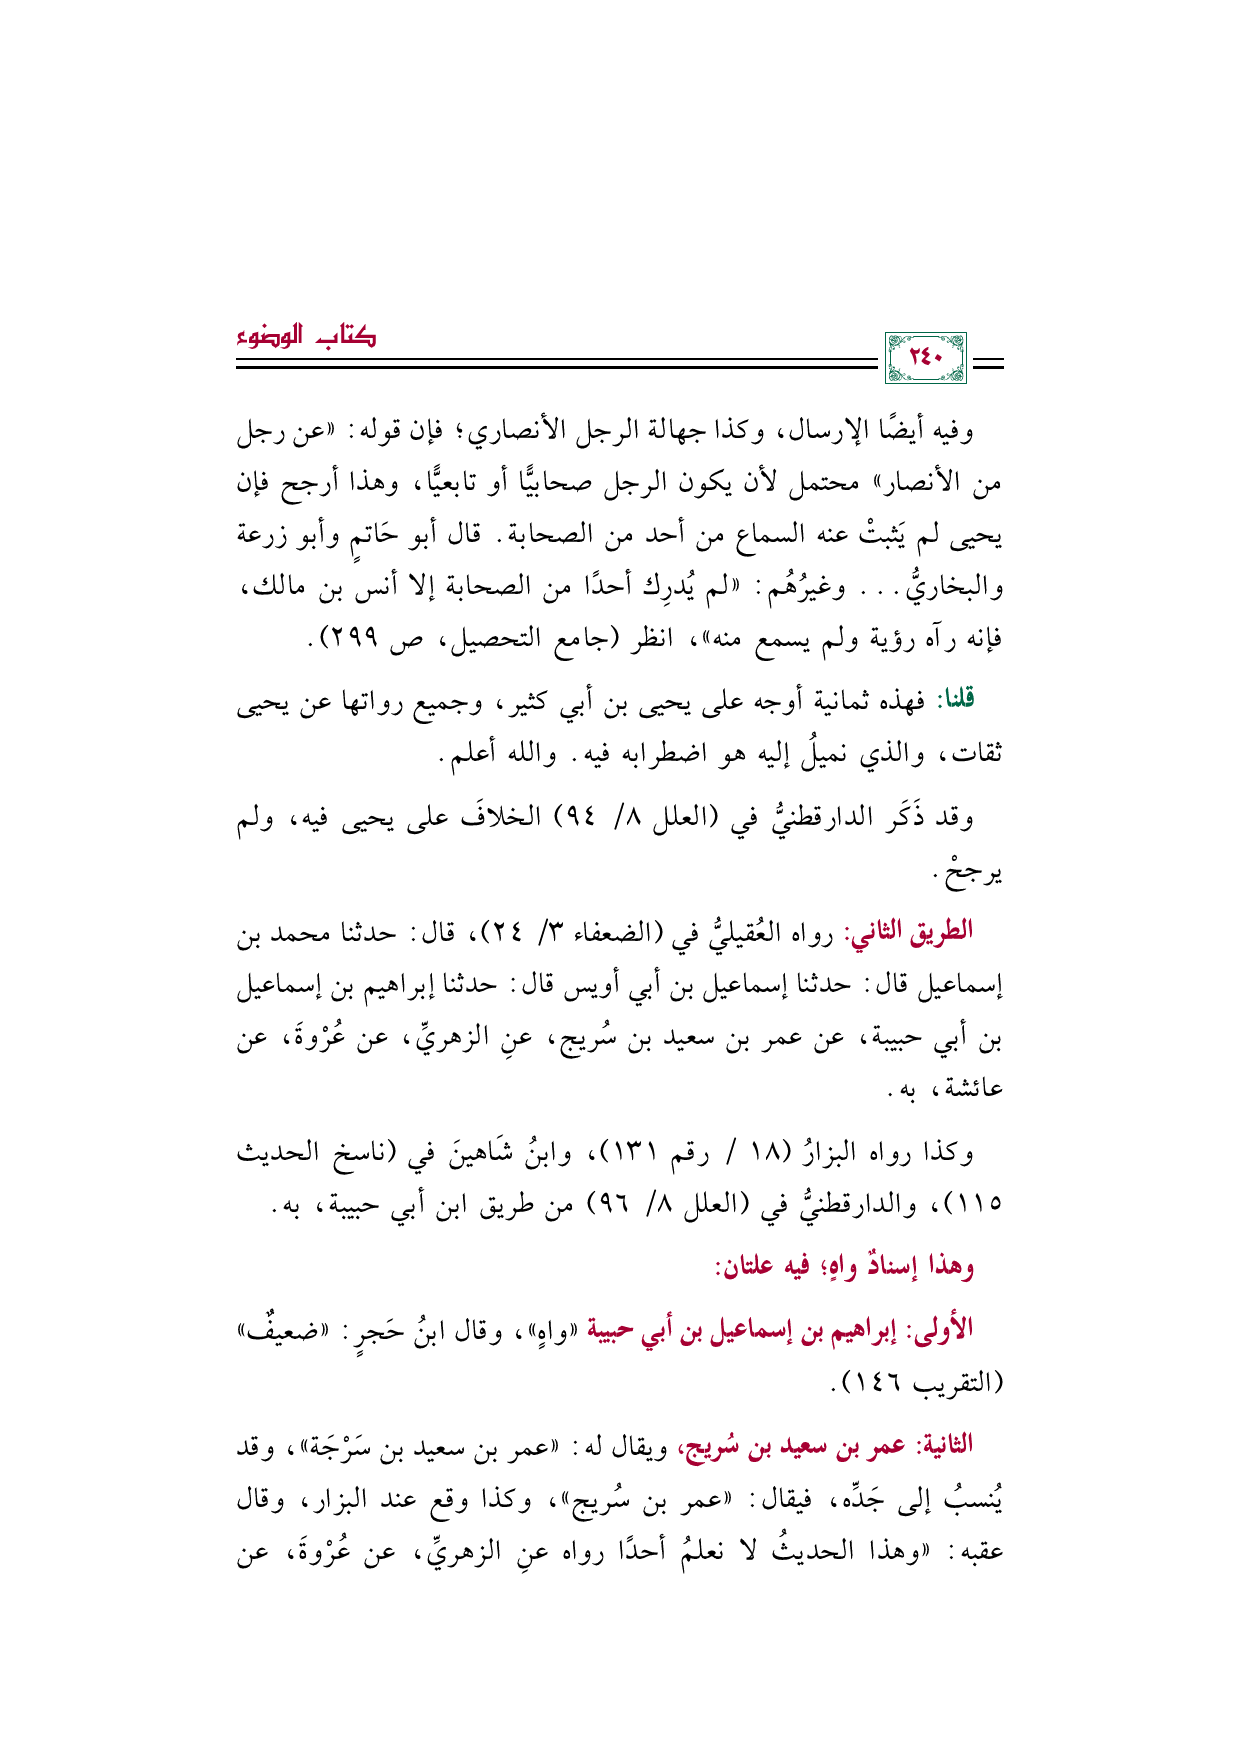 كتاب الوضوء
٢٤٠
وفيه أيضًا الإرسال، وكذا جهالة الرجل الأنصاري؛ فإن قوله: «عن رجل
من الأنصار» محتمل لأن يكون الرجل صحابيًّا أو تابعيًّا، وهذا أرجح فإن
يحيى لم يَثبتْ عنه السماع من أحد من الصحابة. قال أبو حَاتمٍ وأبو زرعة
والبخاريُّ... وغيرُهُم: «لم يُدرِك أحدًا من الصحابة إلا أنس بن مالك،
فإنه رآه رؤية ولم يسمع منه»، انظر (جامع التحصيل، ص ٢٩٩).
قلنا: فهذه ثمانية أوجه على يحيى بن أبي كثير، وجميع رواتها عن يحيى
ثقات، والذي نميلُ إليه هو اضطرابه فيه. والله أعلم.
وقد ذَكَر الدارقطنيُّ في (العلل ٨/ ٩٤) الخلافَ على يحيى فيه، ولم
يرجحْ.
الطريق الثاني: رواه العُقيليُّ في (الضعفاء ٣/ ٢٤)، قال: حدثنا محمد بن
إسماعيل قال: حدثنا إسماعيل بن أبي أويس قال: حدثنا إبراهيم بن إسماعيل
بن أبي حبيبة، عن عمر بن سعيد بن سُريج، عنِ الزهريِّ، عن عُرْوةَ، عن
عائشة، به.
وكذا رواه البزارُ (١٨ / رقم ١٣١)، وابنُ شَاهينَ في (ناسخ الحديث
١١٥)، والدارقطنيُّ في (العلل ٨/ ٩٦) من طريق ابن أبي حبيبة، به.
وهذا إسنادٌ واهٍ؛ فيه علتان:
الأولى: إبراهيم بن إسماعيل بن أبي حبيبة «واهٍ»، وقال ابنُ حَجرٍ: «ضعيفٌ»
(التقريب ١٤٦).
الثانية: عمر بن سعيد بن سُريج، ويقال له: «عمر بن سعيد بن سَرْجَة»، وقد
يُنسبُ إلى جَدِّه، فيقال: «عمر بن سُريج»، وكذا وقع عند البزار، وقال
عقبه: «وهذا الحديثُ لا نعلمُ أحدًا رواه عنِ الزهريِّ، عن عُرْوةَ، عن